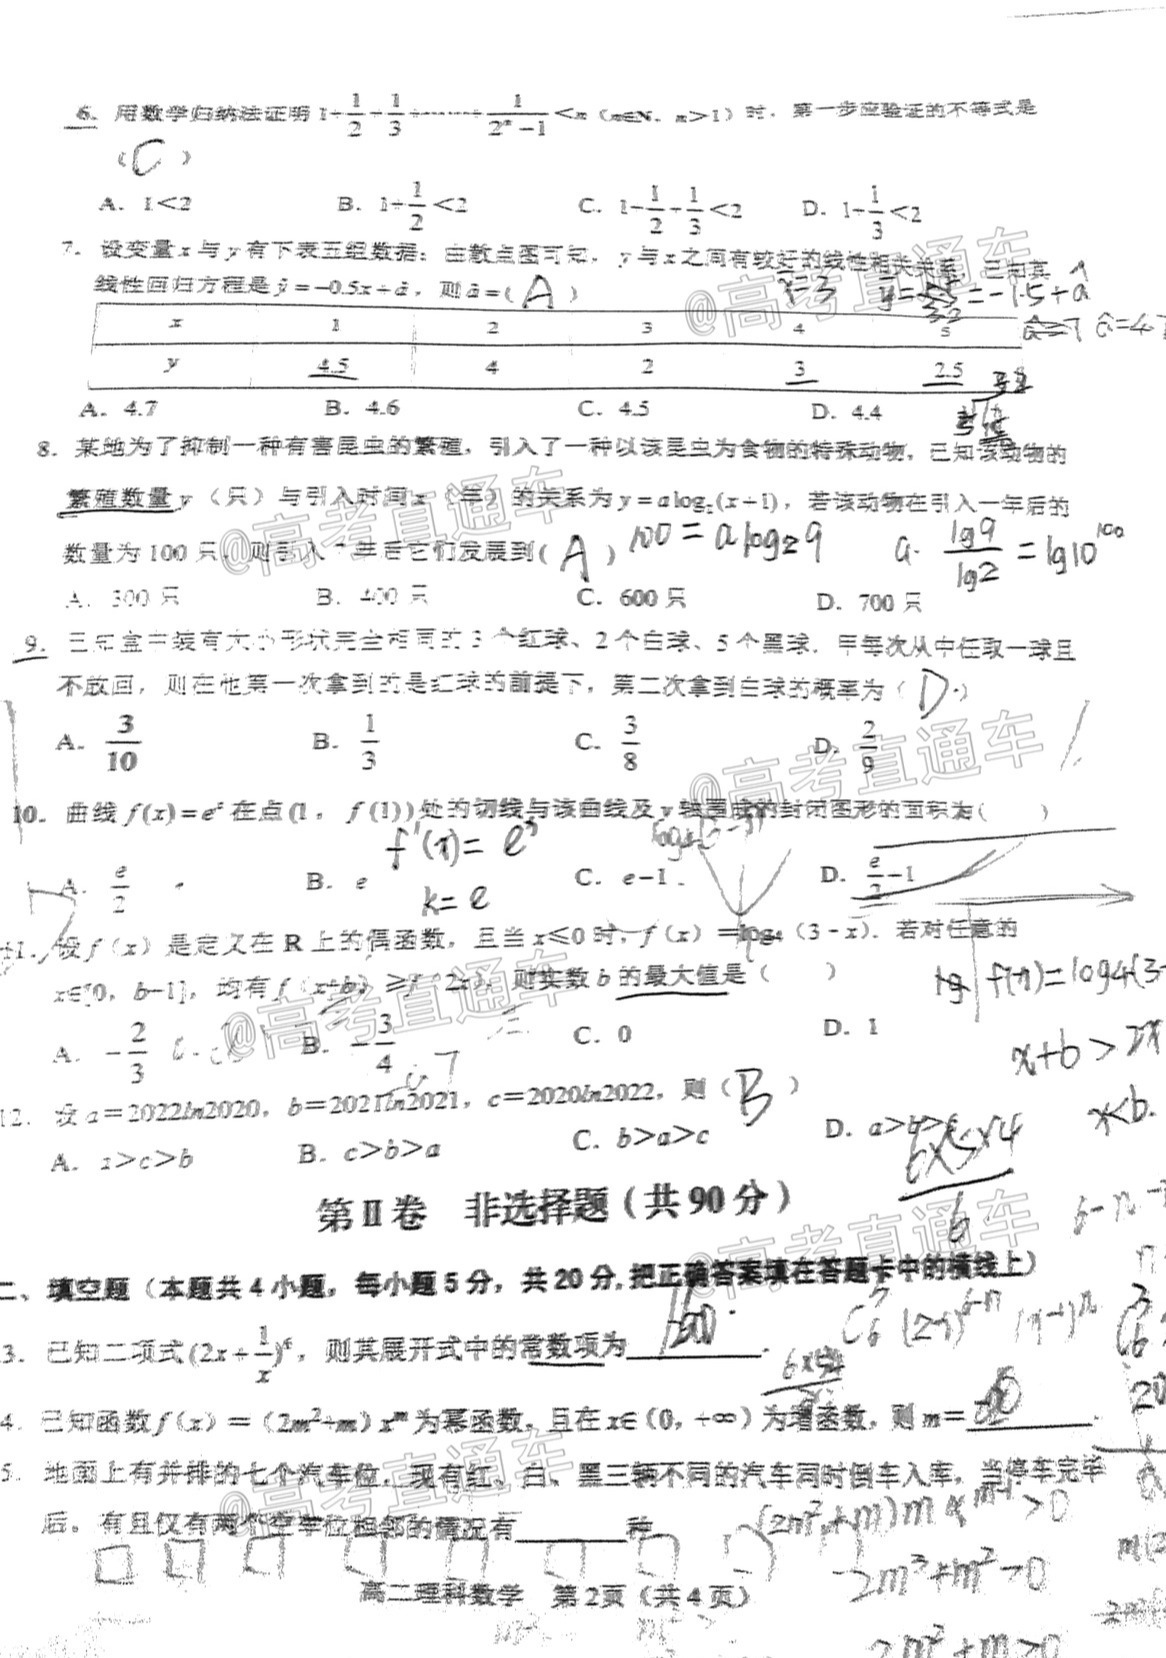 6. 用数学归纳法证明 1+1/2+1/3+……+1/(2ⁿ-1)<n（n∈N，n>1）时，第一步应验证的不等式是
（C）
A. 1<2 B. 1+1/2<2 C. 1+1/2+1/3<2 D. 1+1/3<2
7. 设变量 x 与 y 有下表五组数据：由散点图可知，y 与 x 之间有较好的线性相关关系，已知其
线性回归方程是 ŷ=-0.5x+â，则 â=（A）
x 1 2 3 4 5
y 4.5 4 2 3 2.5
A. 4.7 B. 4.6 C. 4.5 D. 4.4
8. 某地为了抑制一种有害昆虫的繁殖，引入了一种以该昆虫为食物的特殊动物，已知该动物的
繁殖数量 y（只）与引入时间 x（年）的关系为 y=alog₂(x+1)，若该动物在引入一年后的
数量为 100 只，则引入 年后它们发展到（A） 100=alog₂9
lg9/lg2=lg10¹⁰⁰
A. 300 只 B. 400 只 C. 600 只 D. 700 只
9. 已知盒中装有大小形状完全相同的 3 个红球、2 个白球、5 个黑球．甲每次从中任取一球且
不放回，则在他第一次拿到的是红球的前提下，第二次拿到白球的概率为（D）
A. 3/10 B. 1/3 C. 3/8 D. 2/9
10. 曲线 f(x)=eˣ 在点(1，f(1))处的切线与该曲线及 y 轴围成的封闭图形的面积为（ ）
k=e
A. e/2 B. e C. e-1 D. e/2-1
11. 设 f（x）是定义在 R 上的偶函数，且当 x≤0 时，f（x）=log₄（3-x）．若对任意的
x∈[0，b-1]，均有 f（x+b）≥f（2x），则实数 b 的最大值是（ ）
A. -2/3 B. -3/4 C. 0 D. 1
x+b>2x
x<b.
12. 设 a=2022ln2020，b=2021ln2021，c=2020ln2022，则（B）
A. a>c>b B. c>b>a C. b>a>c D. a>b>c
6×5×4
6
第Ⅱ卷 非选择题（共90分）
二、填空题（本题共4小题，每小题5分，共20分，把正确答案填在答题卡中的横线上）
3. 已知二项式(2x+1/x)⁶，则其展开式中的常数项为 .
4. 已知函数 f（x）=（2m²+m）xᵐ 为幂函数，且在 x∈（0，+∞）为增函数，则 m=
5. 地面上有并排的七个汽车位，现有红、白、黑三辆不同的汽车同时倒车入库，当停车完毕
后，有且仅有两个空车位相邻的情况有 种
2m³+m²>0
高二理科数学 第2页（共4页）
2m²+m>0
@高考直通车
@高考直通车
@高考直通车
@高考直通车
@高考直通车
@高考直通车